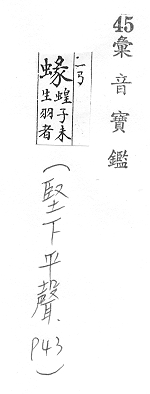 45彙音寶鑑
二ㄢ
蝝蝗子未
生羽者
(堅下平聲、P43)